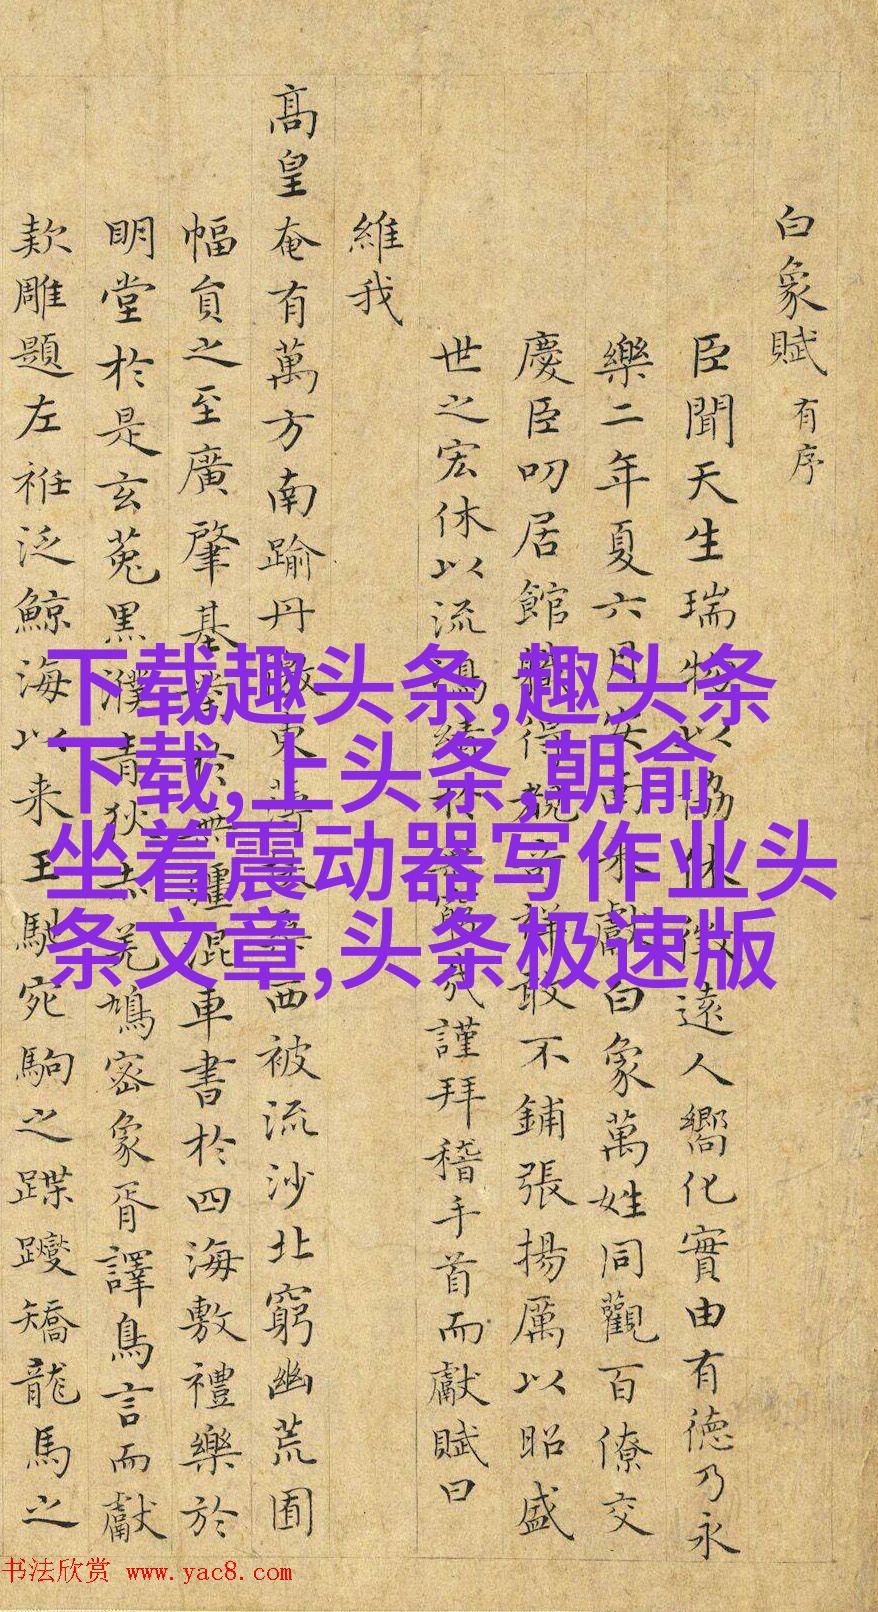 白象賦有序
臣聞天生瑞物以協休徵遠人嚮化實由有德乃永
樂二年夏六月安南來獻白象萬姓同觀百僚交
慶臣叨居館職得覩奇祥敢不鋪張揚厲以昭盛
世之宏休以流鴻績於無
謹拜稽手首而獻賦曰
維我
高皇奄有萬方南踰丹
東
西被流沙北窮幽荒囿
幅員之至廣肇基
於無疆混車書於四海敷禮樂於
明堂於是玄菟黑濮青狄
羌鳩密象胥譯鳥言而獻
款雕題左衽泛鯨海以来王馳宛駒之蹀躞矯龍馬之
下载趣头条,趣头条
下载,上头条,朝俞
坐着震动器写作业头
条文章,头条极速版
书法欣赏 www.yac8.com